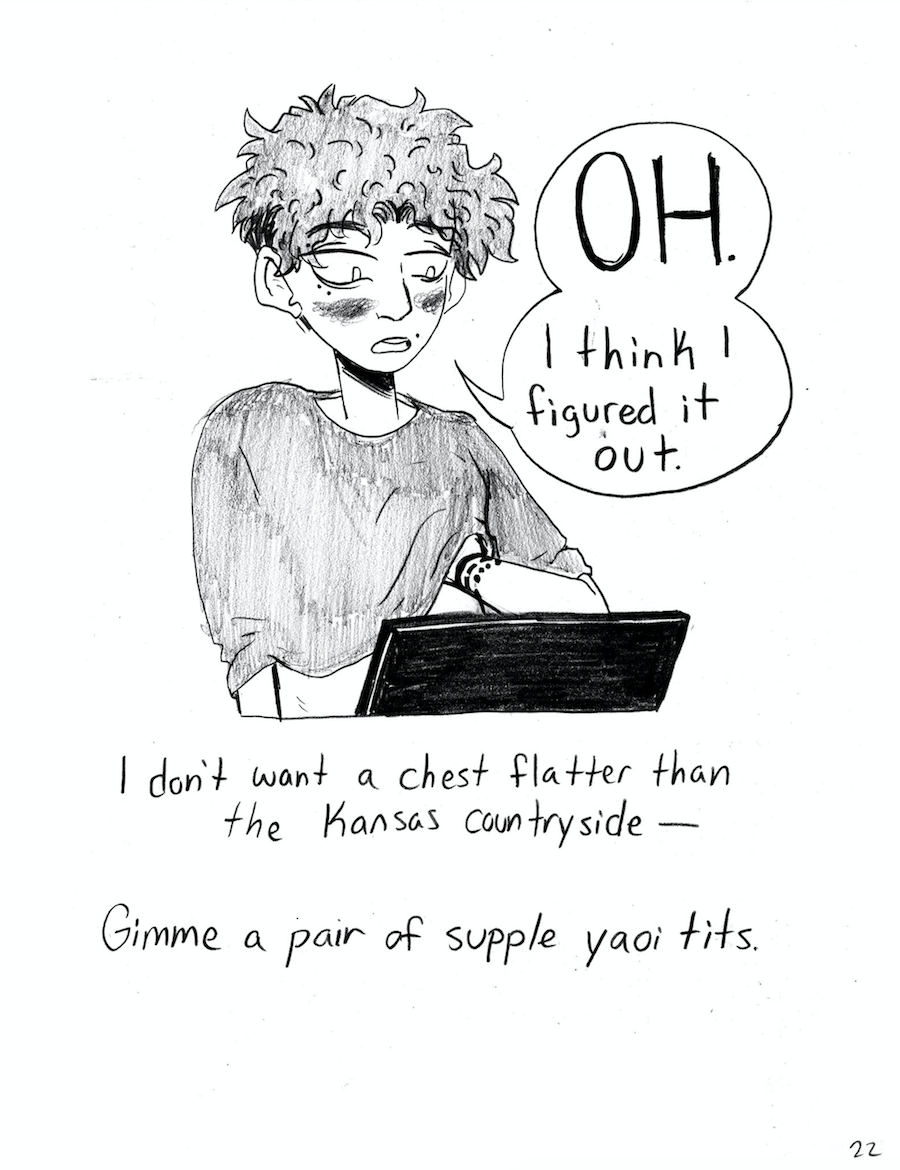 OH.
I think I
figured it
out.
I don't want a chest flatter than
the Kansas countryside —
Gimme a pair of supple yaoi tits.
22